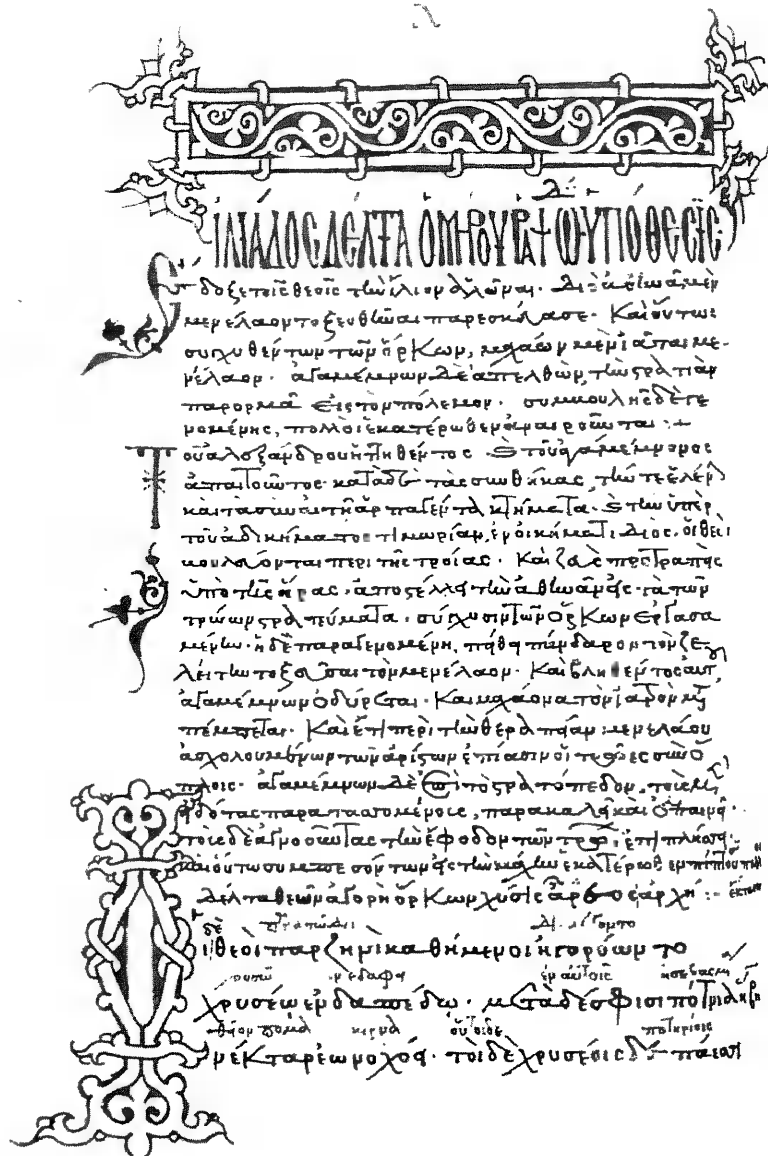 ΙΛΙΑΔΟΣ ΔΕΛΤΑ ΟΜΗΡΟΥ ΡΑΨΩ ΥΠΟΘΕΣΙΣ
Ἔδοξε τοῖς θεοῖς τὴν ἴλιον ἁλῶναι· ἀθηνᾶ μὲν
μενέλαον τοξευθῆναι παρεσκεύασε· Καὶ οὕτως
συγχυθέντων τῶν ὅρκων, μαχάων μὲν ἰᾶται με-
νέλαον· ἀγαμέμνων δὲ ἀπελθὼν, τὴν στρατιὰν
παρορμᾶ εἰς τὸν πόλεμον· συμβουλῆς δὲ γε
νομένης, πολλοὶ ἑκατέρωθεν ἀναιροῦνται :+
Τοῦ ἀλεξάνδρου ἡττηθέντος· καὶ τοῦ ἀγαμέμνονος
ἀπαιτοῦντος κατὰ τὰς συνθήκας, τήν τε ἑλένην
καὶ τὰ σὺν αὐτῇ ἁρπαγέντα κτήματα· καὶ τὴν ὑπὲρ
τοῦ ἀδικήματος τιμωρίαν, ἐν οἰκήματι Διὸς, οἱ θεοὶ
βουλεύονται περὶ τῆς τροίας· Καὶ ζεὺς προτραπεὶς
ὑπὸ τῆς ἥρας· ἀποστέλλει τὴν ἀθηνᾶν εἰς τὰ τῶν
τρώων στρατεύματα· σύγχυσιν τῶν ὅρκων ἐργασα
μένην· ἡ δὲ παραγενομένη, πείθει πάνδαρον τὸν ζε
λείτην τοξεῦσαι τὸν μενέλαον· Καὶ βληθέντος αὐτοῦ
ἀγαμέμνων ὀδύρεται· Καὶ μαχάονα τὸν ἰατρὸν μετα
πέμπεται· Καὶ ἔτι περὶ τὴν θεραπείαν μενελάου
ἀσχολουμένων τῶν ἀρίστων ἐπίασιν οἱ τρῶες σὺν ὅ
πλοις· ἀγαμέμνων δὲ τὸ στρατόπεδον, τοὺς μὲν
εἰδότας παρατασσομένοις, παρακαλεῖ καὶ ἐπαινεῖ·
τοὺς δὲ ἀγνοοῦντας τὴν ἔφοδον τῶν τρώων, ἐπιπλήττει·
καὶ οὕτω συμπεσόντων εἰς τὴν μάχην ἑκατέρωθεν πίπτουσι
Δέλτα θεῶν ἀγορὴ ὅρκων χύσις ἄρεος ἀρχή :-
Οἱ δὲ θεοὶ παρ ζηνὶ καθήμενοι ἠγορόωντο
χρυσέω ἐν δαπέδω· μετὰ δέ σφισι πότνια ἥβη
νέκταρ ἐωνοχόει· τοὶ δὲ χρυσέοις δεπάεσσι